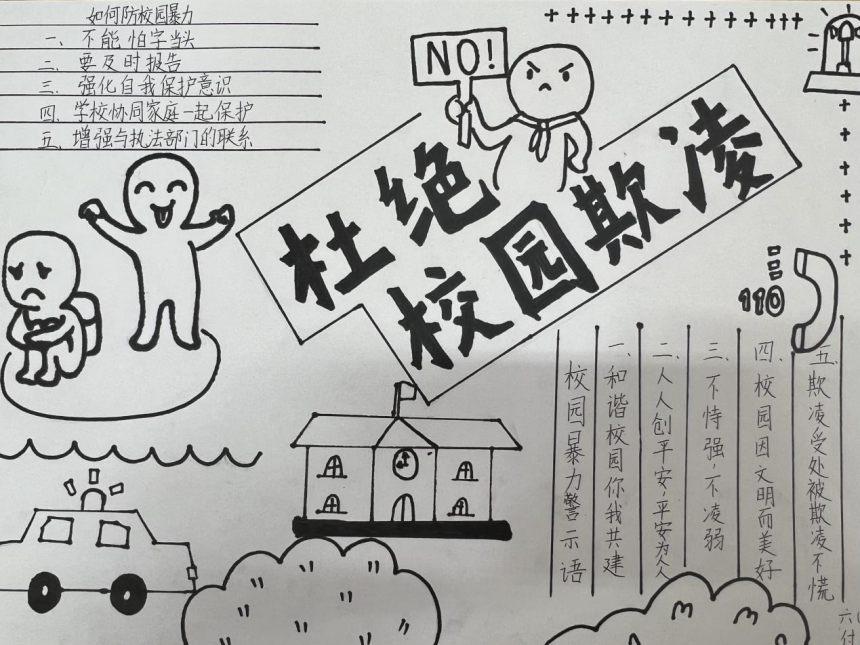 如何防校园暴力
一、不能怕字当头
二、要及时报告
三、强化自我保护意识
四、学校协同家庭一起保护
五、增强与执法部门的联系
NO!
杜绝
校园欺凌
110
校园暴力警示语
一、和谐校园你我共建
二、人人创平安，平安为人人
三、不恃强，不凌弱
四、校园因文明而美好
五、欺凌受处被欺凌不慌